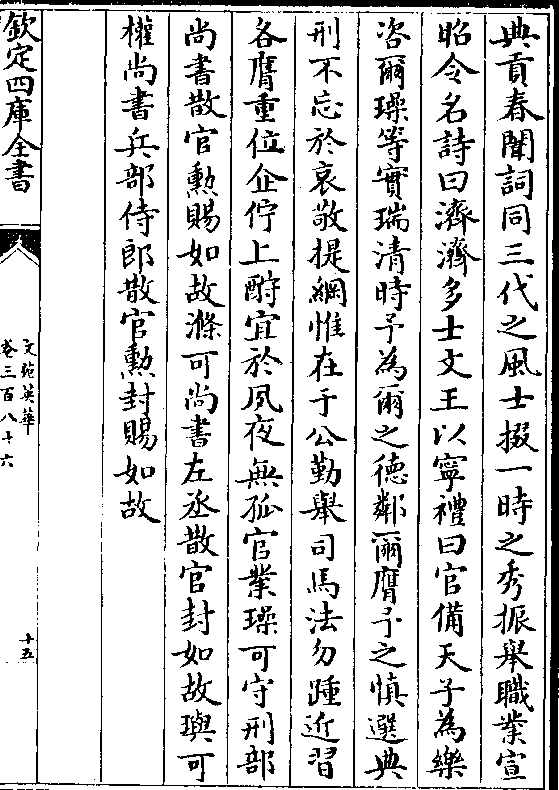 典貢春闈詞同三代之風士掇一時之秀振舉職業宣
昭令名詩曰濟濟多士文王以寧禮曰官備天子為樂
咨爾璪等實瑞清時予為爾之德鄰爾膺予之慎選典
刑不忘於哀敬提綱惟在于公勤舉司馬法勿踵近習
各膺重位企佇上酧宜於夙夜無孤官業璪可守刑部
尚書散官勲賜如故滌可尚書左丞散官封如故璵可
權尚書兵部侍郎散官勲封賜如故
欽定四庫全書
文苑英華
卷三百八十六
十五